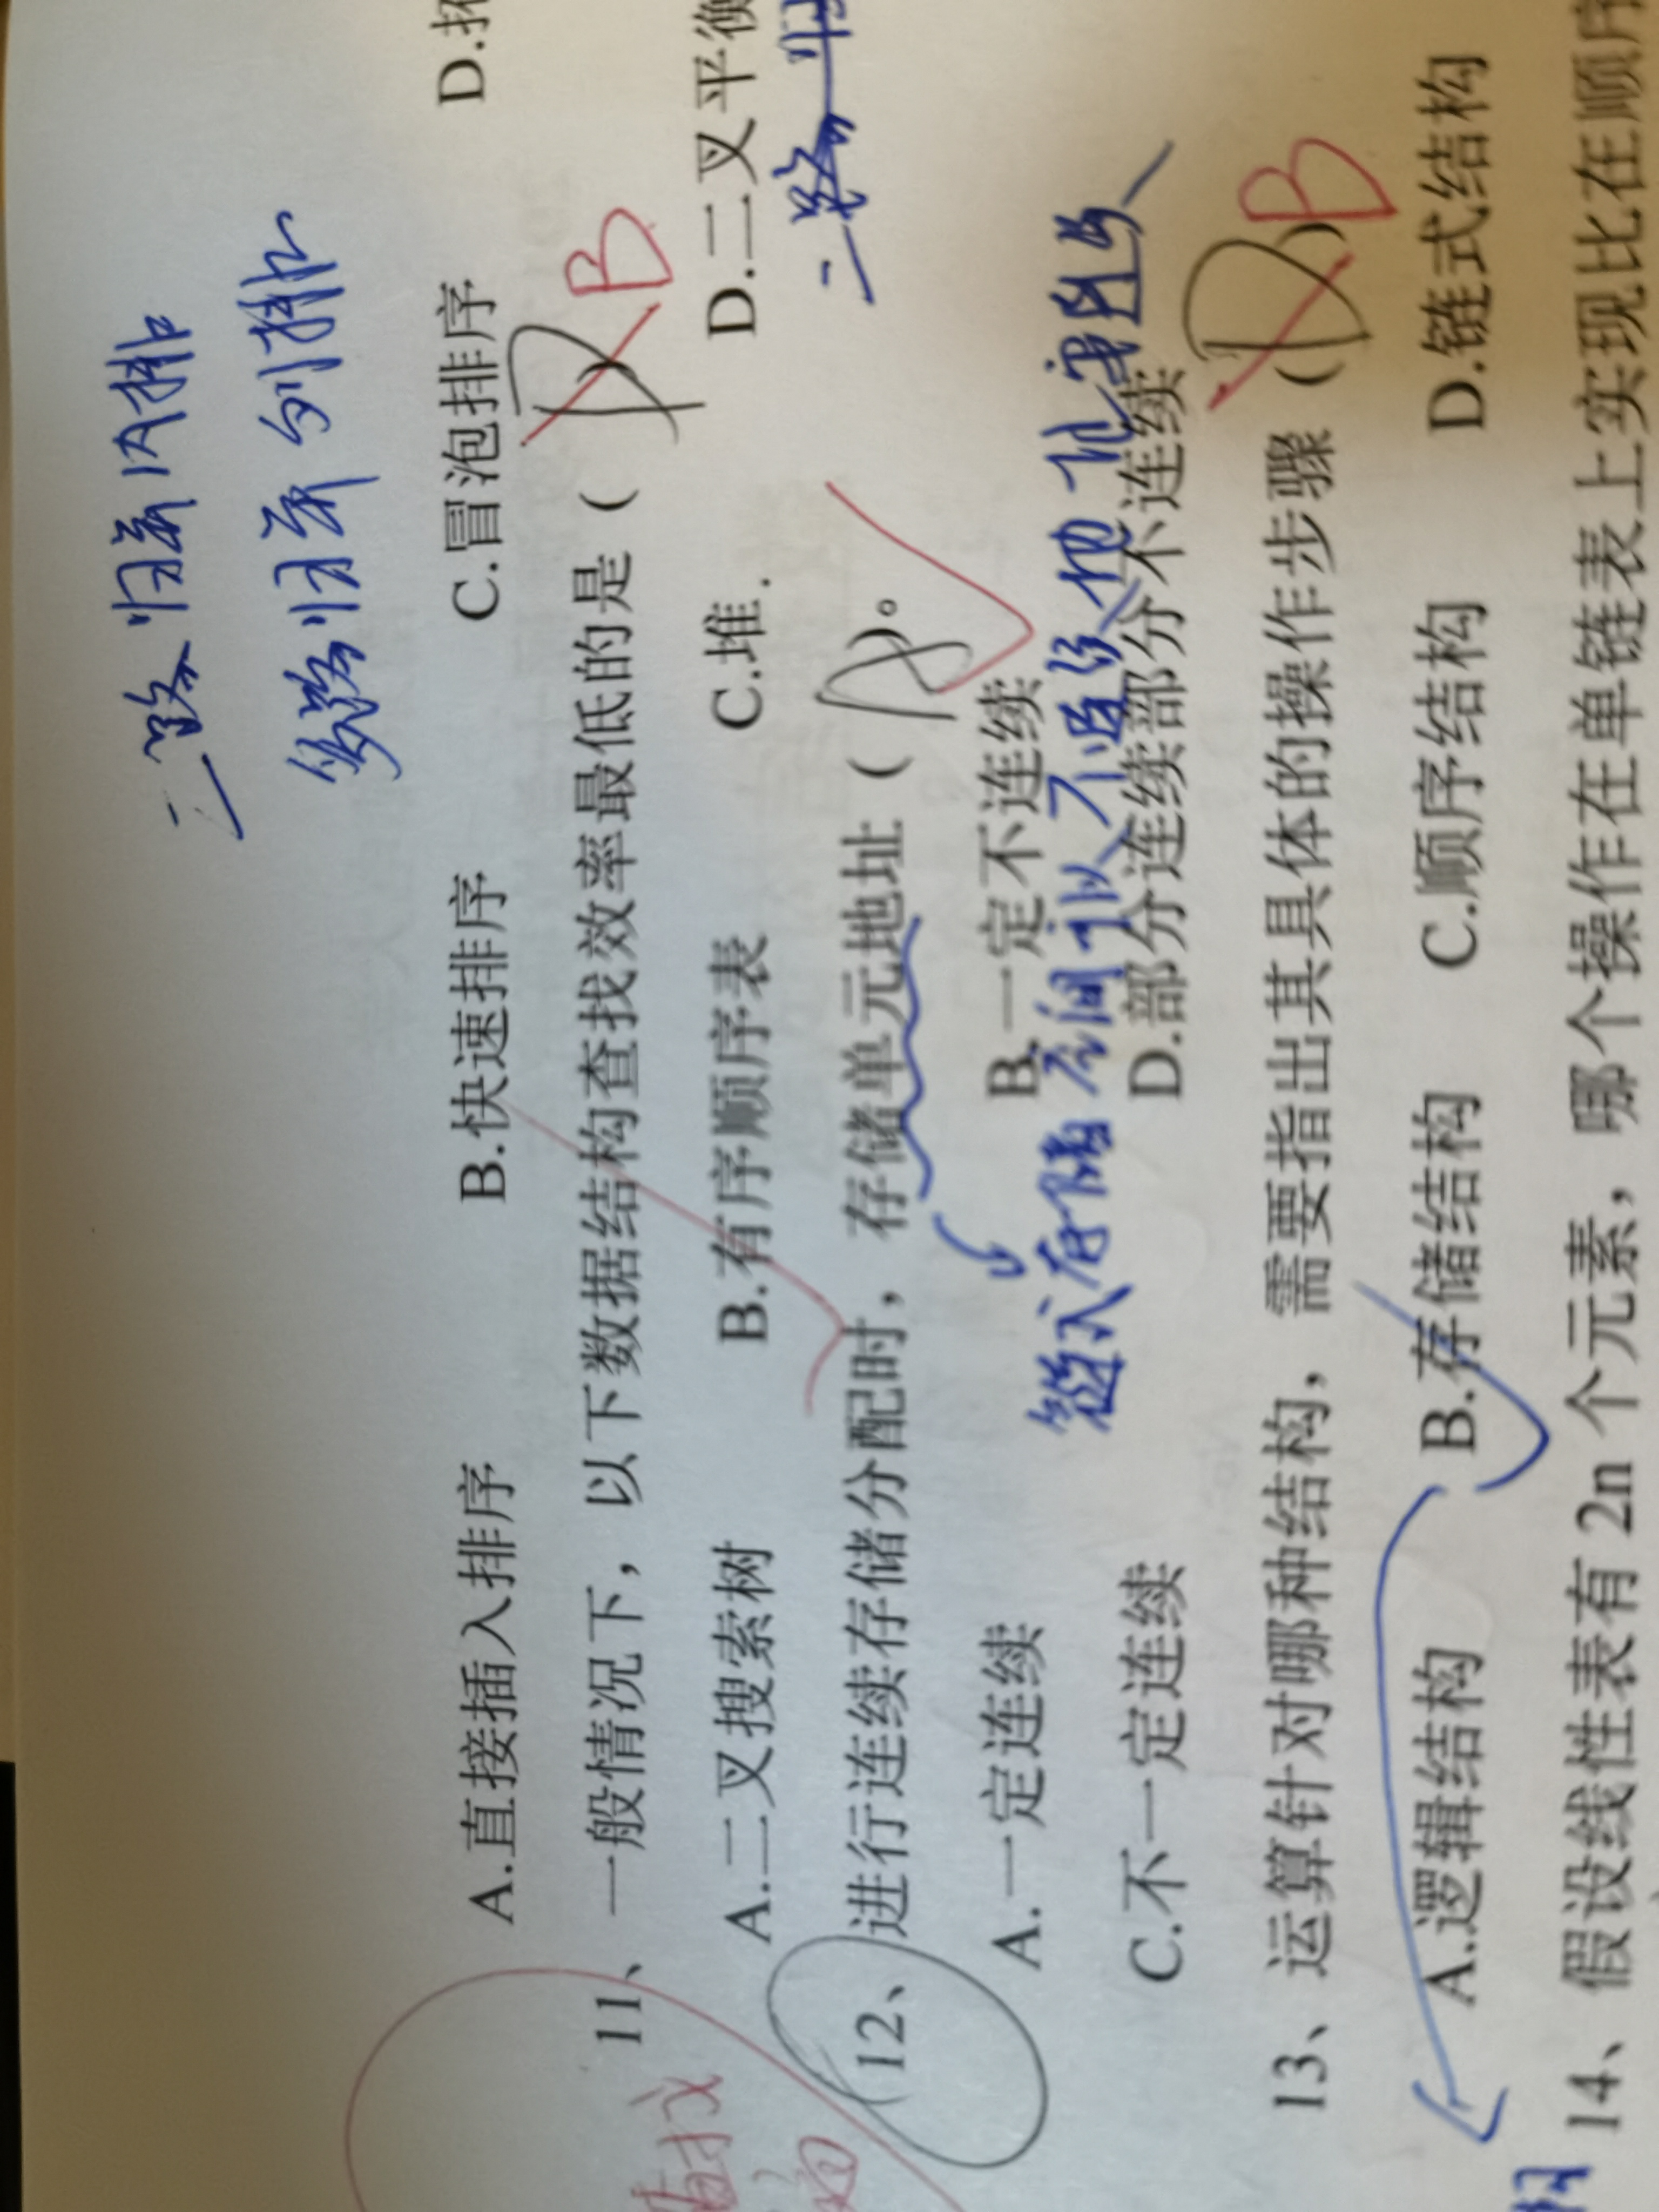 二路归并内排
多路归并外排
A.直接插入排序 B.快速排序 C.冒泡排序 D.拓
11、一般情况下，以下数据结构查找效率最低的是（ D ） B
A.二叉搜索树 B.有序顺序表 C.堆. D.二叉平衡
二路归
12、进行连续存储分配时，存储单元地址（ A ）。
A.一定连续 B.一定不连续
链式存储 空间可以不连续
C.不一定连续 D.部分连续部分不连续
13、运算针对哪种结构，需要指出其具体的操作步骤（ D ） B
A.逻辑结构 B.存储结构 C.顺序结构 D.链式结构
14、假设线性表有 2n 个元素，哪个操作在单链表上实现比在顺序